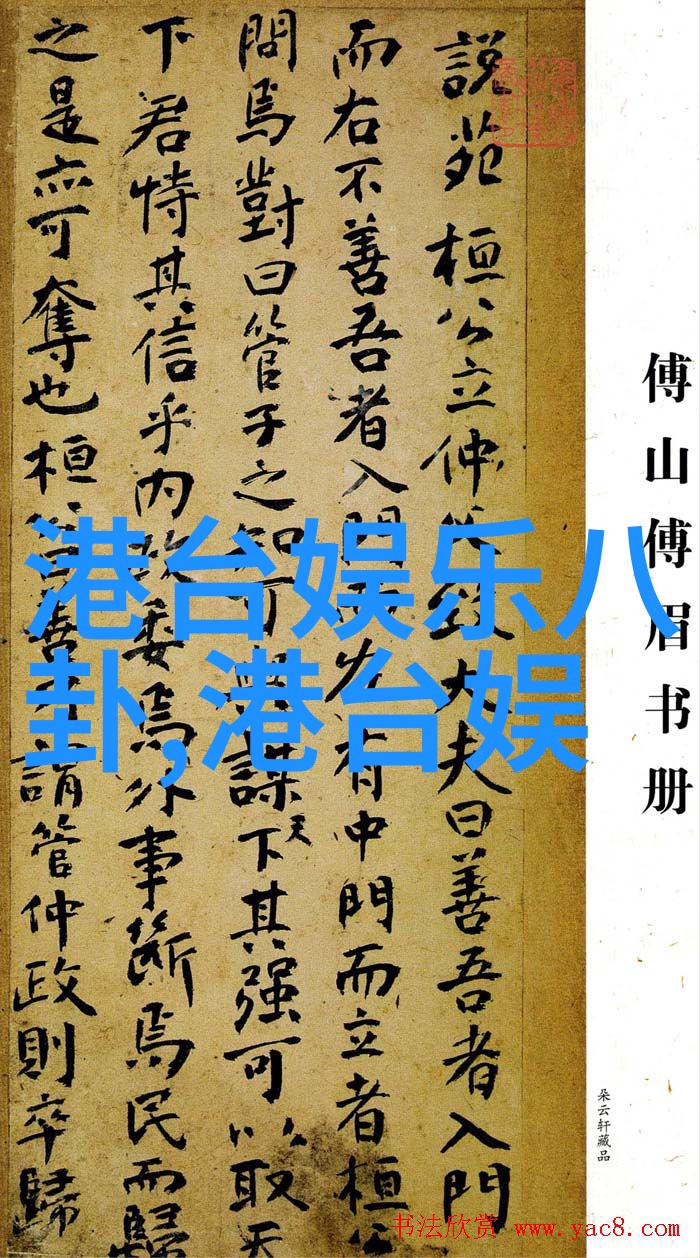 説苑 桓公立仲父致大夫曰善吾者入門
而右不善吾者入門而左有中門而立者桓公
問焉對曰管子之知可與謀天下其强可以取天
下君恃其信乎内政委焉外事斷焉民而歸
之是亦可奪也桓公曰善乃謂管仲政則卒歸
傅山傅眉书册
朵云轩藏品
港台娱乐八
卦,港台娱
书法欣赏 www.yac8.com